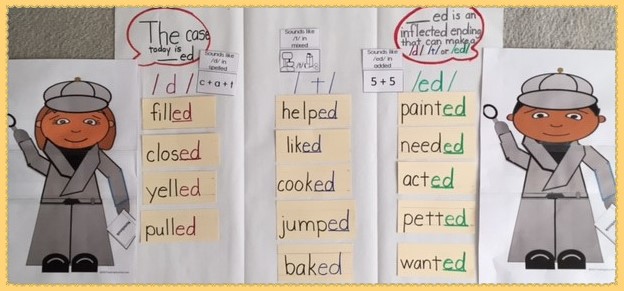 The case
today is
__ ed
Sounds like
/d/ in
spelled
c + a + t
/ d /
filled
closed
yelled
pulled
Sounds like
/t/ in
mixed
/ t /
helped
liked
cooked
jumped
baked
__ ed is an
inflected ending
that can make a
/d/ /t/ or /ed/
Sounds like
/ed/ in
added
5 + 5
/ed/
painted
needed
acted
petted
wanted